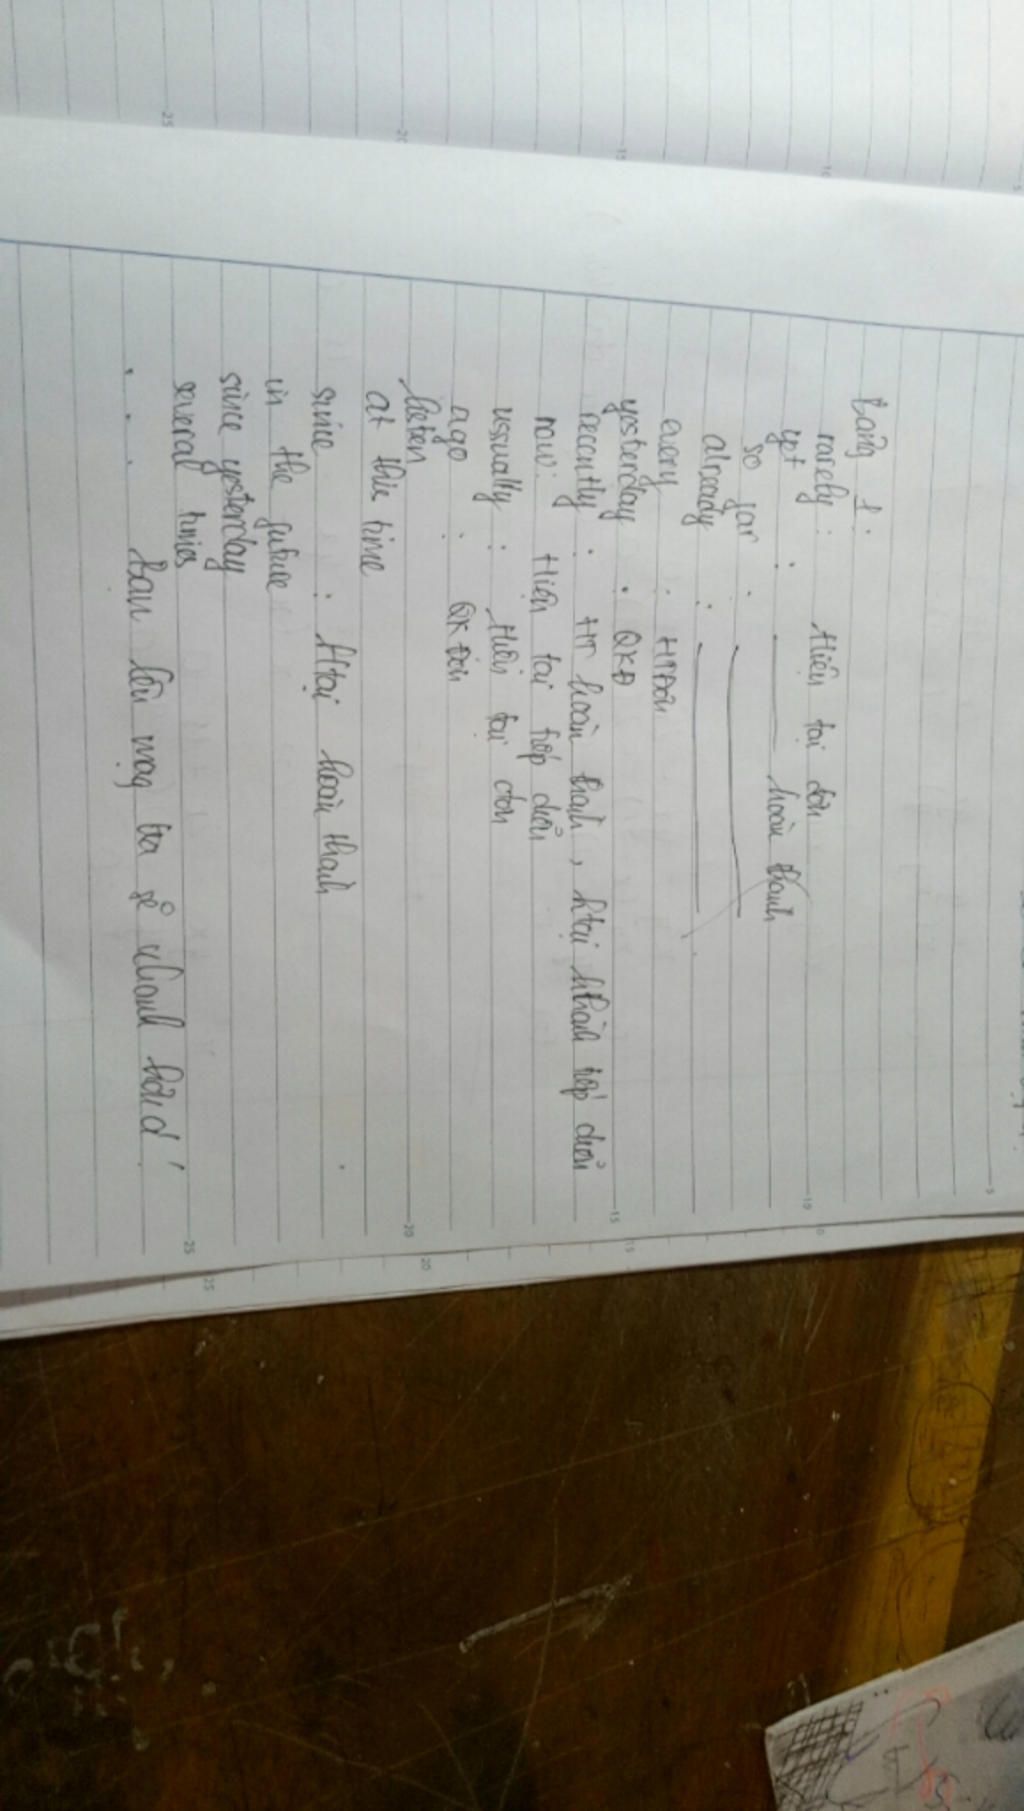 Bảng 1:
rarely : Hiện tại đơn
ypt : hoàn thành
so far :
already :
every : HTĐơn
yesterday : QKĐ
recently : HT hoàn thành, htại hthành tiếp diễn
now: Hiện tại tiếp diễn
ussually : Hiện tại đơn
ago : QK Đơn
at this time
since : Htại hoàn thành
in the future
since yesterday
several times
. . . Bạn lên mạng tra sẽ nhanh hơn đ'